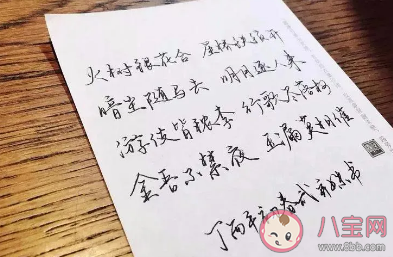 火树银花合 星桥铁锁开
暗尘随马去 明月逐人来
游伎皆秾李 行歌尽落梅
金吾不禁夜 玉漏莫相催
丁酉年初春
八宝网
www.8bb.com